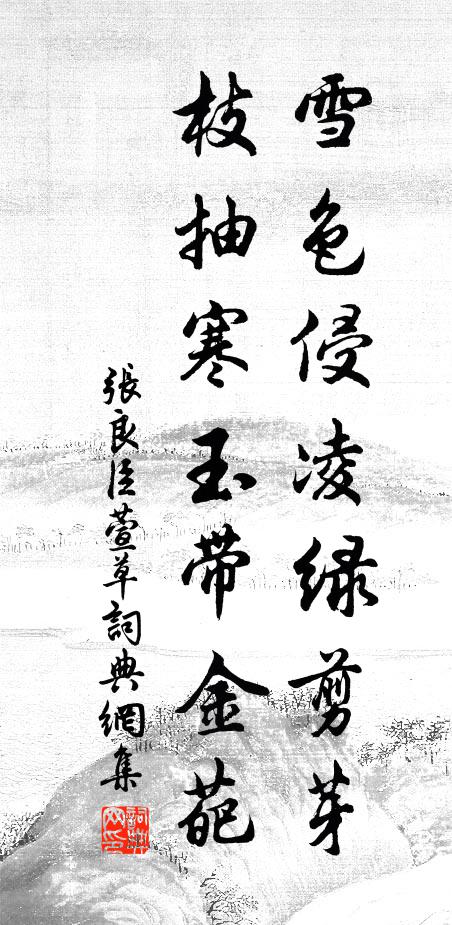 雪色侵凌绿剪芽
枝抽寒玉带金葩
張良臣萱草詞典網集